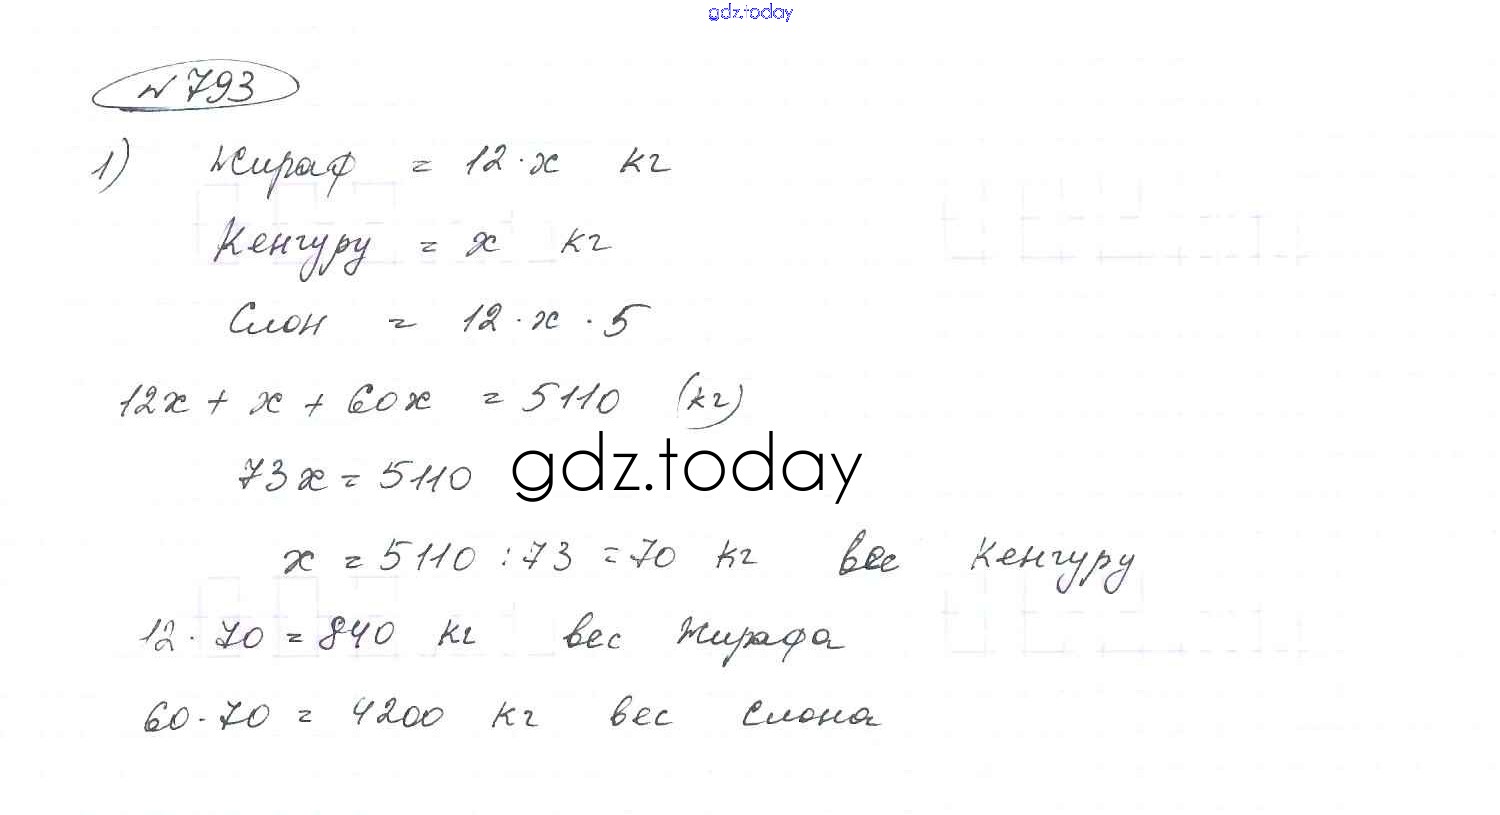 gdz.today
№ 793
1) Жираф = 12·x кг
Кенгуру = x кг
Слон = 12·x·5
12x + x + 60x = 5110 (кг)
73x = 5110
gdz.today
x = 5110 : 73 = 70 кг вес Кенгуру
12·70 = 840 кг вес Жирафа
60·70 = 4200 кг вес слона